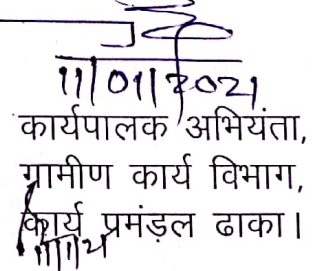 11/01/2021
कार्यपालक अभियंता,
ग्रामीण कार्य विभाग,
कार्य प्रमंडल ढाका।